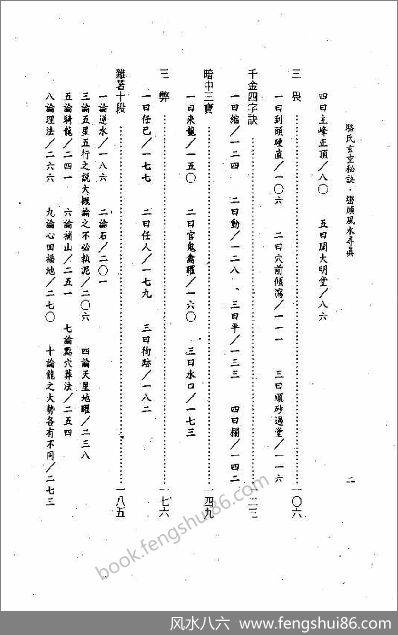 駱氏玄空秘訣·巒頭風水寶典
二
四曰主峰正頂/八〇 五曰開大明堂/八六
三畏……一〇六
一曰到頭硬直/一〇六 二曰穴前傾瀉/一一一 三曰順砂過堂/一一六
千金四字訣……一二三
一曰縮/一二四 二曰動/一二八 三曰平/一三三 四曰欄/一四二
暗中三寶……一四九
一曰來龍/一五〇 二曰官鬼禽曜/一六〇 三曰水口/一七三
三弊……一七六
一曰任己/一七七 二曰任人/一七九 三曰銜跡/一八二
雜著十段……一八五
一論逆水/一八六 二論石/二〇一
三論五星五行之說大概論之不必執泥/二〇六 四論天星地曜/二三八
五論騎龍/二四一 六論補山/二五一 七論點穴葬法/二五四
八論理法/二六六 九論心田福地/二七〇 十論龍之大勢各有不同/二七三
book.fengshui86.com
风水八六 www.fengshui86.com